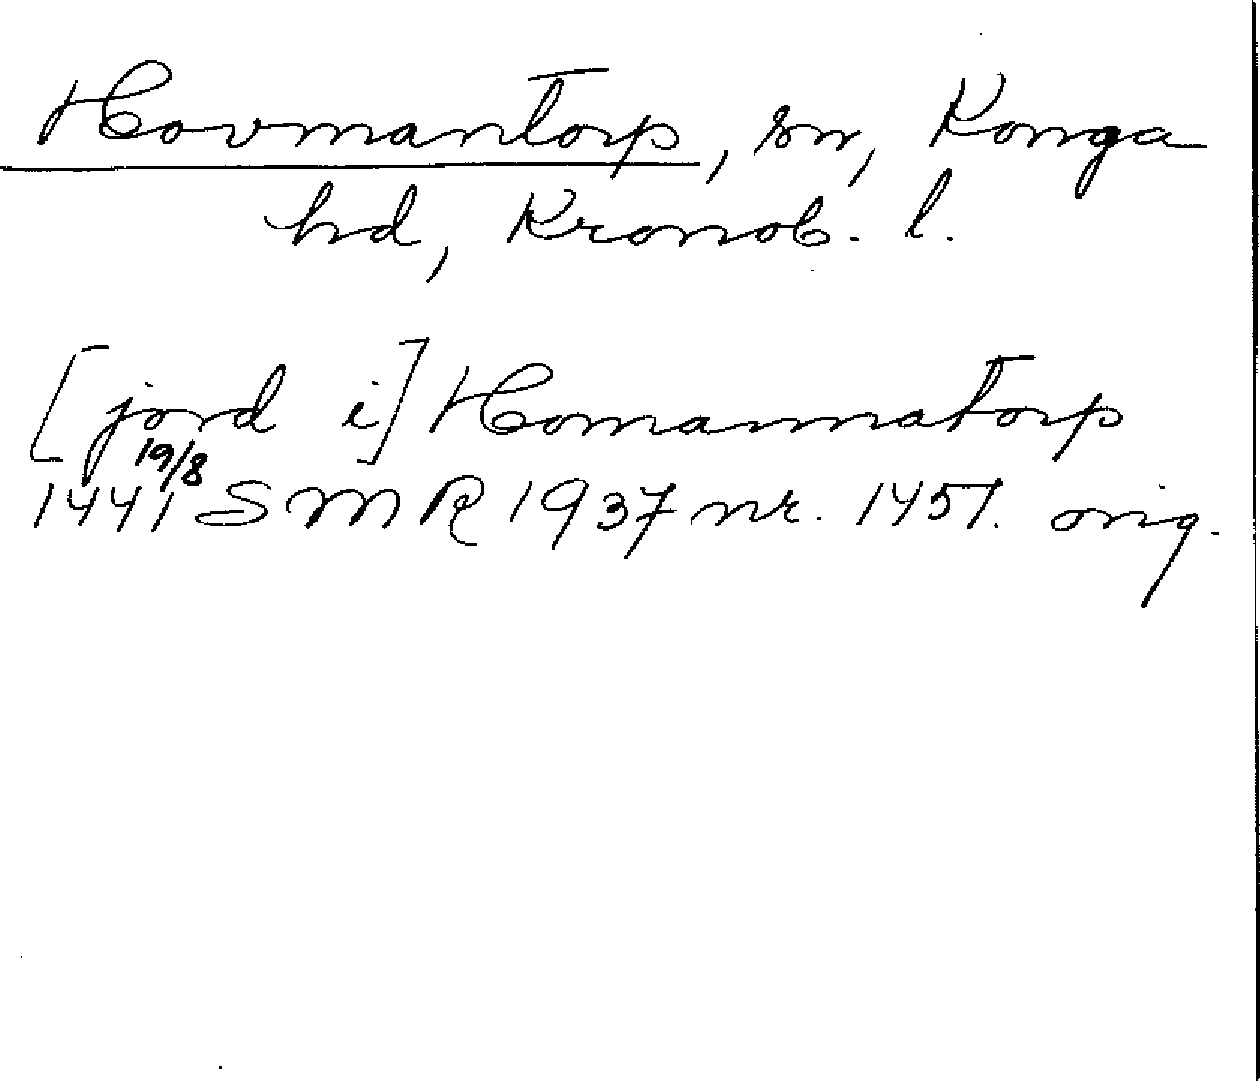 Hovmantorp, sn, Konga
hd, Kronob. l.
[jord i] Homannatorp
19/8
1441 SMR 1937 nr. 1451. orig.